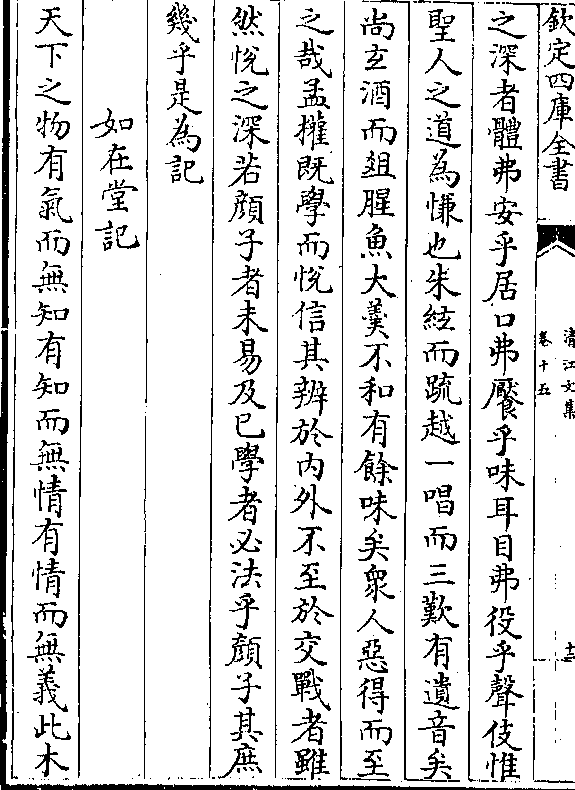 欽定四庫全書
清江文集
卷十五
十二
之深者體弗安乎居口弗饜乎味耳目弗役乎聲伎惟
聖人之道為慊也朱絃而疏越一唱而三歎有遺音矣
尚玄酒而俎腥魚大羹不和有餘味矣衆人惡得而至
之哉孟㩲既學而悅信其辨於内外不至於交戰者雖
然悅之深若顔子者未易及已學者必法乎顔子其庶
幾乎是為記
如在堂記
天下之物有氣而無知有知而無情有情而無義此木